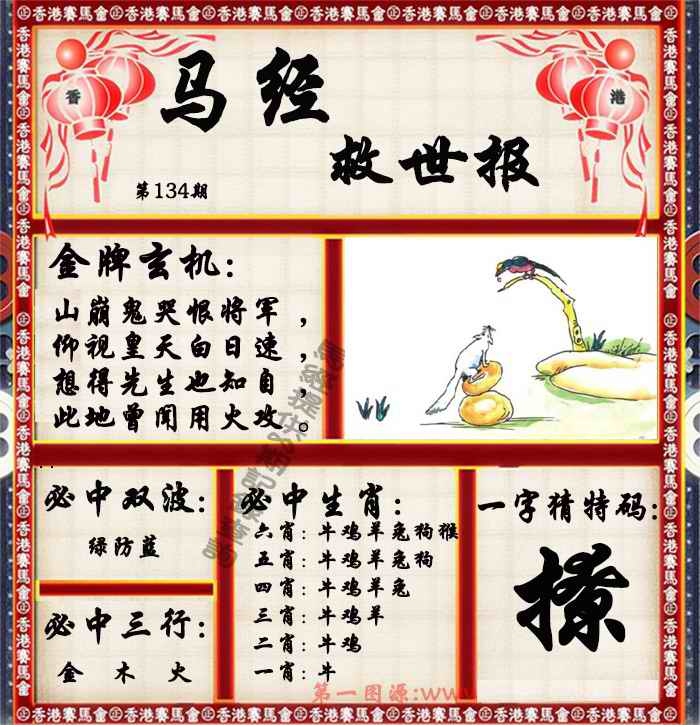 香港賽馬會
香 港
马经
救世报
第134期
金牌玄机:
山崩鬼哭恨将军，
仰视皇天白日速，
想得先生也知自，
此地曾闻用火攻。
必中双波:
绿防蓝
必中三行:
金 木 火
必中生肖:
六肖: 牛鸡羊兔狗猴
五肖: 牛鸡羊兔狗
四肖: 牛鸡羊兔
三肖: 牛鸡羊
二肖: 牛鸡
一肖: 牛
一字猜特码:
撩
第一图源:www